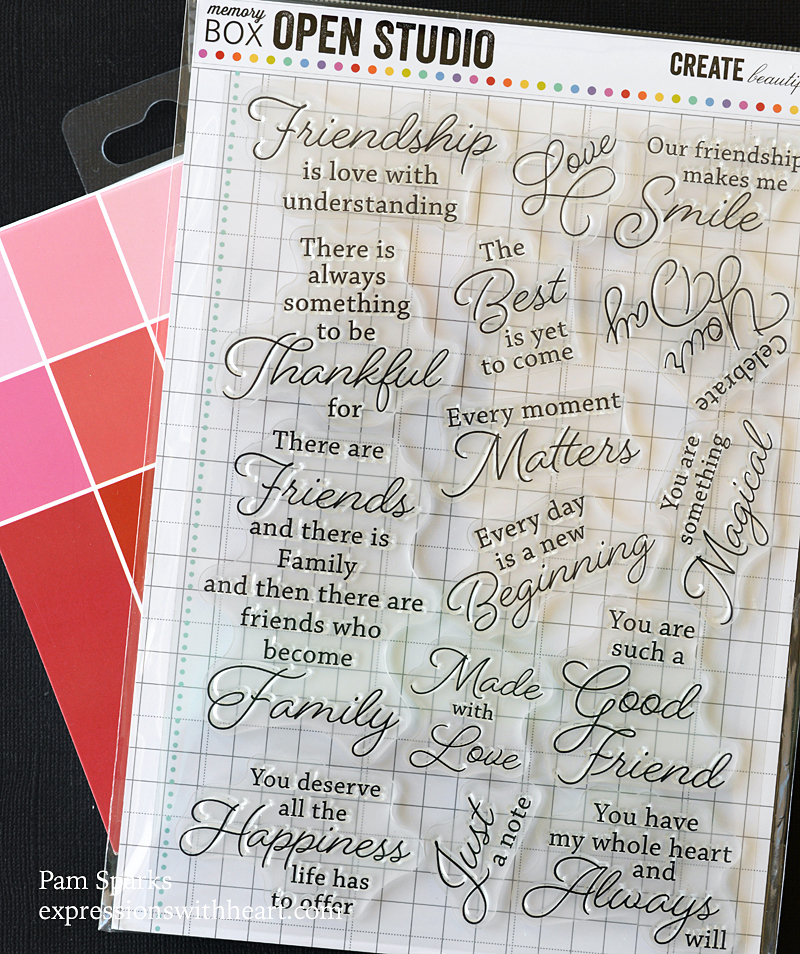 memory
BOX OPEN STUDIO
CREATE
Friendship
is love with
understanding
Love
Our friendship
makes me
Smile
There is
always
something
to be
Thankful
for
The
Best
is yet
to come
Celebrate
Your
Day
Every moment
Matters
There are
Friends
and there is
Family
and then there are
friends who
become
Family
Every day
is a new
Beginning
You are
something
Magical
Made
with
Love
You are
such a
Good
Friend
You deserve
all the
Happiness
life has
to offer
Just
a note
You have
my whole heart
and
Always
will
Pam Sparks
expressionswithheart.com